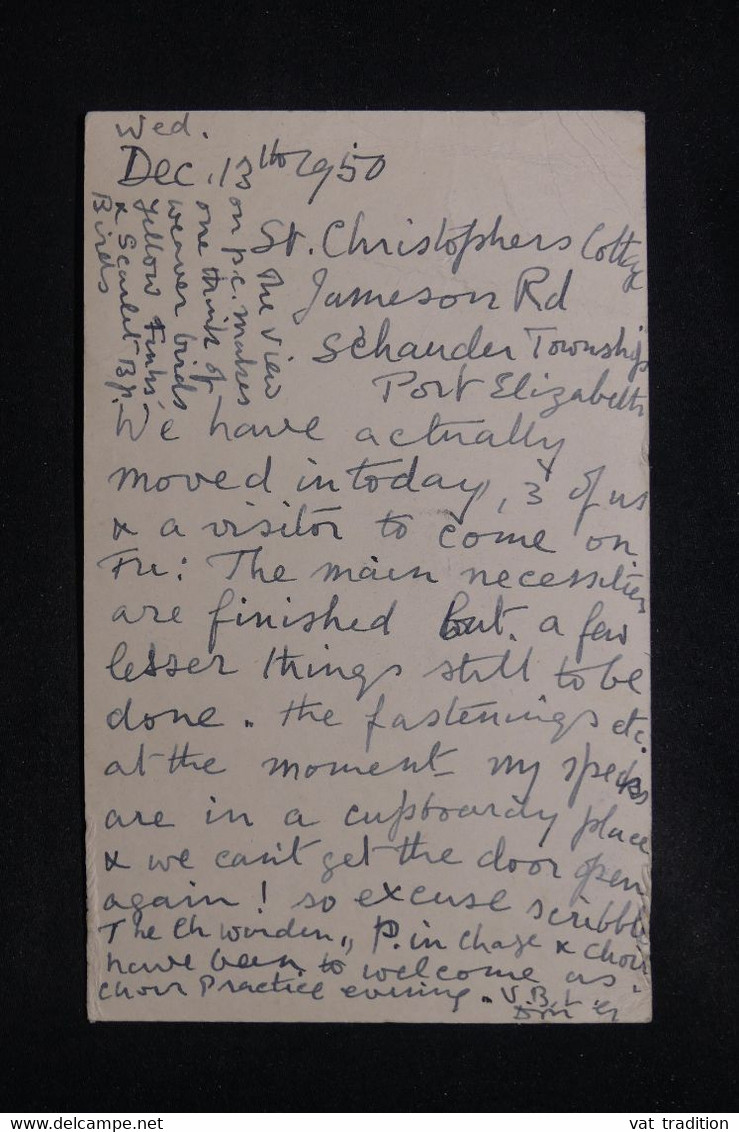 Wed.
Dec. 13th 1950
St. Christophers Cottage
Jameson Rd
Schauder Township
Port Elizabeth
The view
on p.c. makes
one think of
weaver birds
Yellow Finks,
& Scarlet Bp.
Birds
We have actually
moved in today, 3 of us
& a visitor to come on
Fri: The main necessities
are finished but a few
lesser things still to be
done. the fastenings etc.
at the moment my specks
are in a cupboardy place
& we can't get the door open
again! so excuse scribble
The Ch warden,, P. in Charge & Choir
have been to welcome us.
Choir Practice evening. V.B.L.
vat tradition
www.delcampe.net